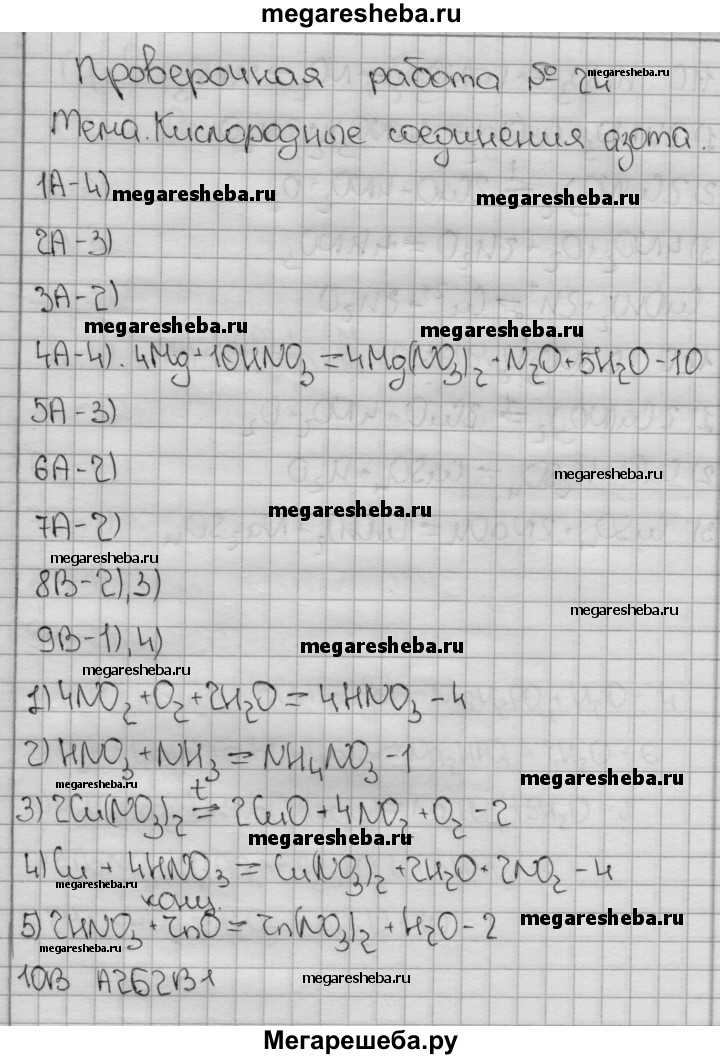 megaresheba.ru
Проверочная работа № 24 megaresheba.ru
Тема. Кислородные соединения азота.
1А-4) megaresheba.ru megaresheba.ru
2А-3)
3А-2)
megaresheba.ru megaresheba.ru
4А-4). 4Mg+10HNO₃=4Mg(NO₃)₂+N₂O+5H₂O-10
5А-3)
6А-2) megaresheba.ru
megaresheba.ru
7А-2)
megaresheba.ru
8В-2),3) megaresheba.ru
9В-1),4) megaresheba.ru
megaresheba.ru
1) 4NO₂+O₂+2H₂O=4HNO₃-4
2) HNO₃+NH₃=NH₄NO₃-1
megaresheba.ru megaresheba.ru
3) 2Cu(NO₃)₂ t= 2CuO+4NO₂+O₂-2
megaresheba.ru
4) Cu+4HNO₃=Cu(NO₃)₂+2H₂O+2NO₂-4
megaresheba.ru конц.
5) 2HNO₃+ZnO=Zn(NO₃)₂+H₂O-2 megaresheba.ru
megaresheba.ru
10В А2Б2В1 megaresheba.ru
Мегарешеба.ру